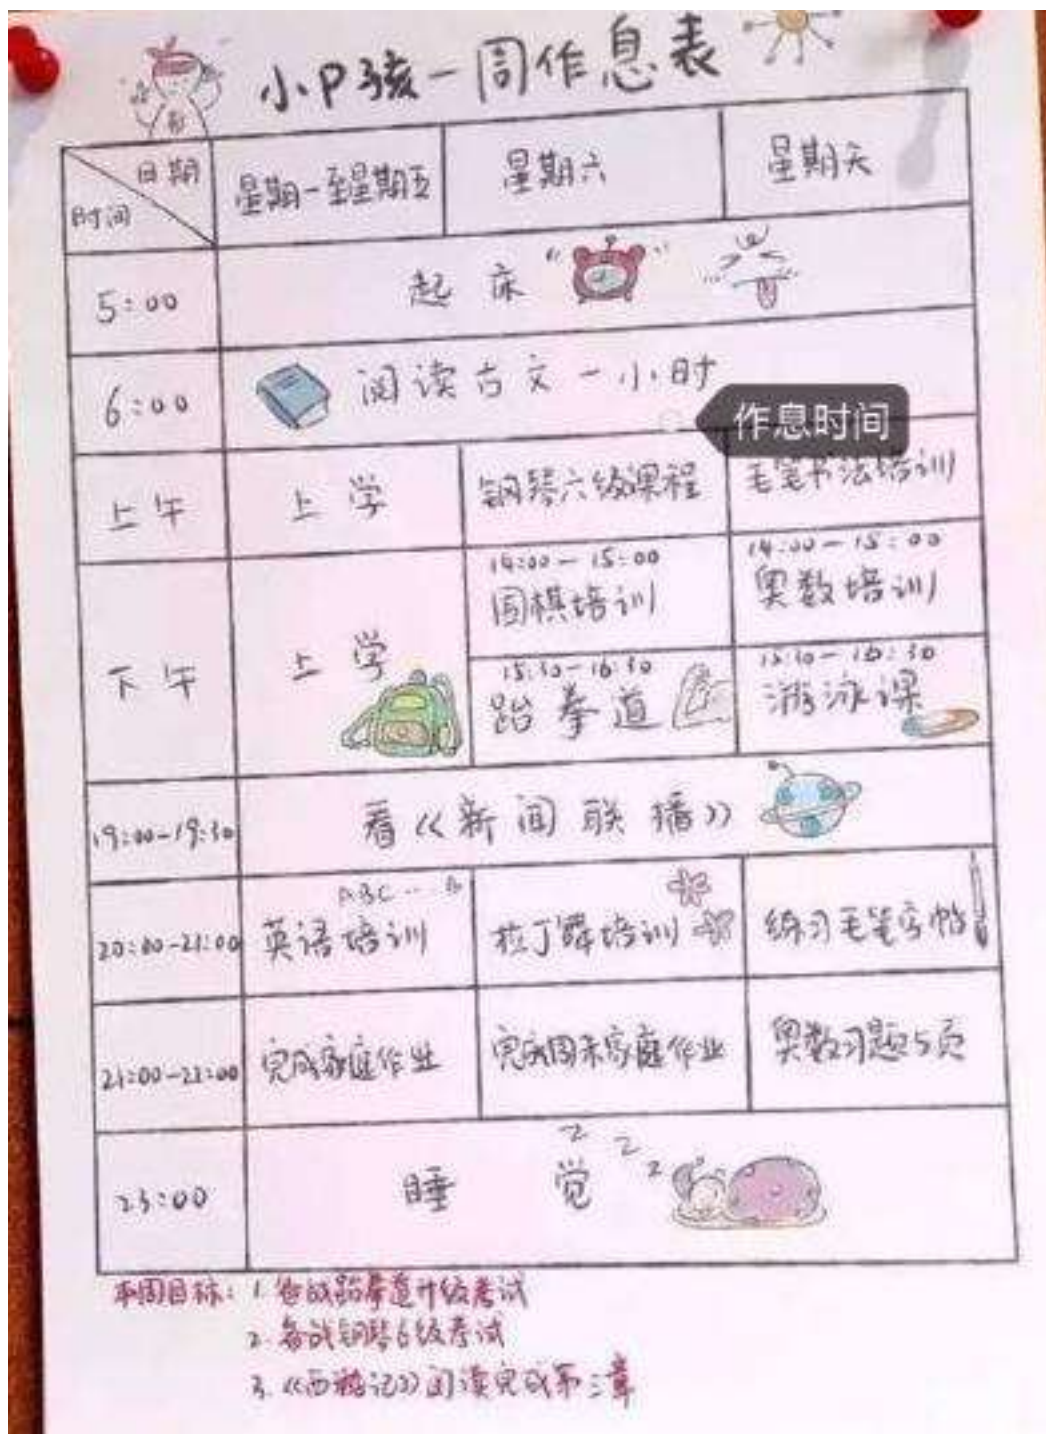 小P孩一周作息表
日期
时间
星期一至星期五
星期六
星期天
5:00
起床
6:00
阅读古文一小时
作息时间
上午
上学
钢琴六级课程
毛笔书法培训
下午
上学
14:00-15:00
围棋培训
14:00-15:00
奥数培训
15:30-16:30
跆拳道
15:30-16:30
游泳课
19:00-19:30
看《新闻联播》
20:00-21:00
ABC
英语培训
拉丁舞培训
练习毛笔字帖
21:00-22:00
完成家庭作业
完成周末家庭作业
奥数习题5页
23:00
睡觉
z z z
本周目标: 1. 备战跆拳道升级考试
2. 备战钢琴6级考试
3. 《西游记》阅读完成第三章